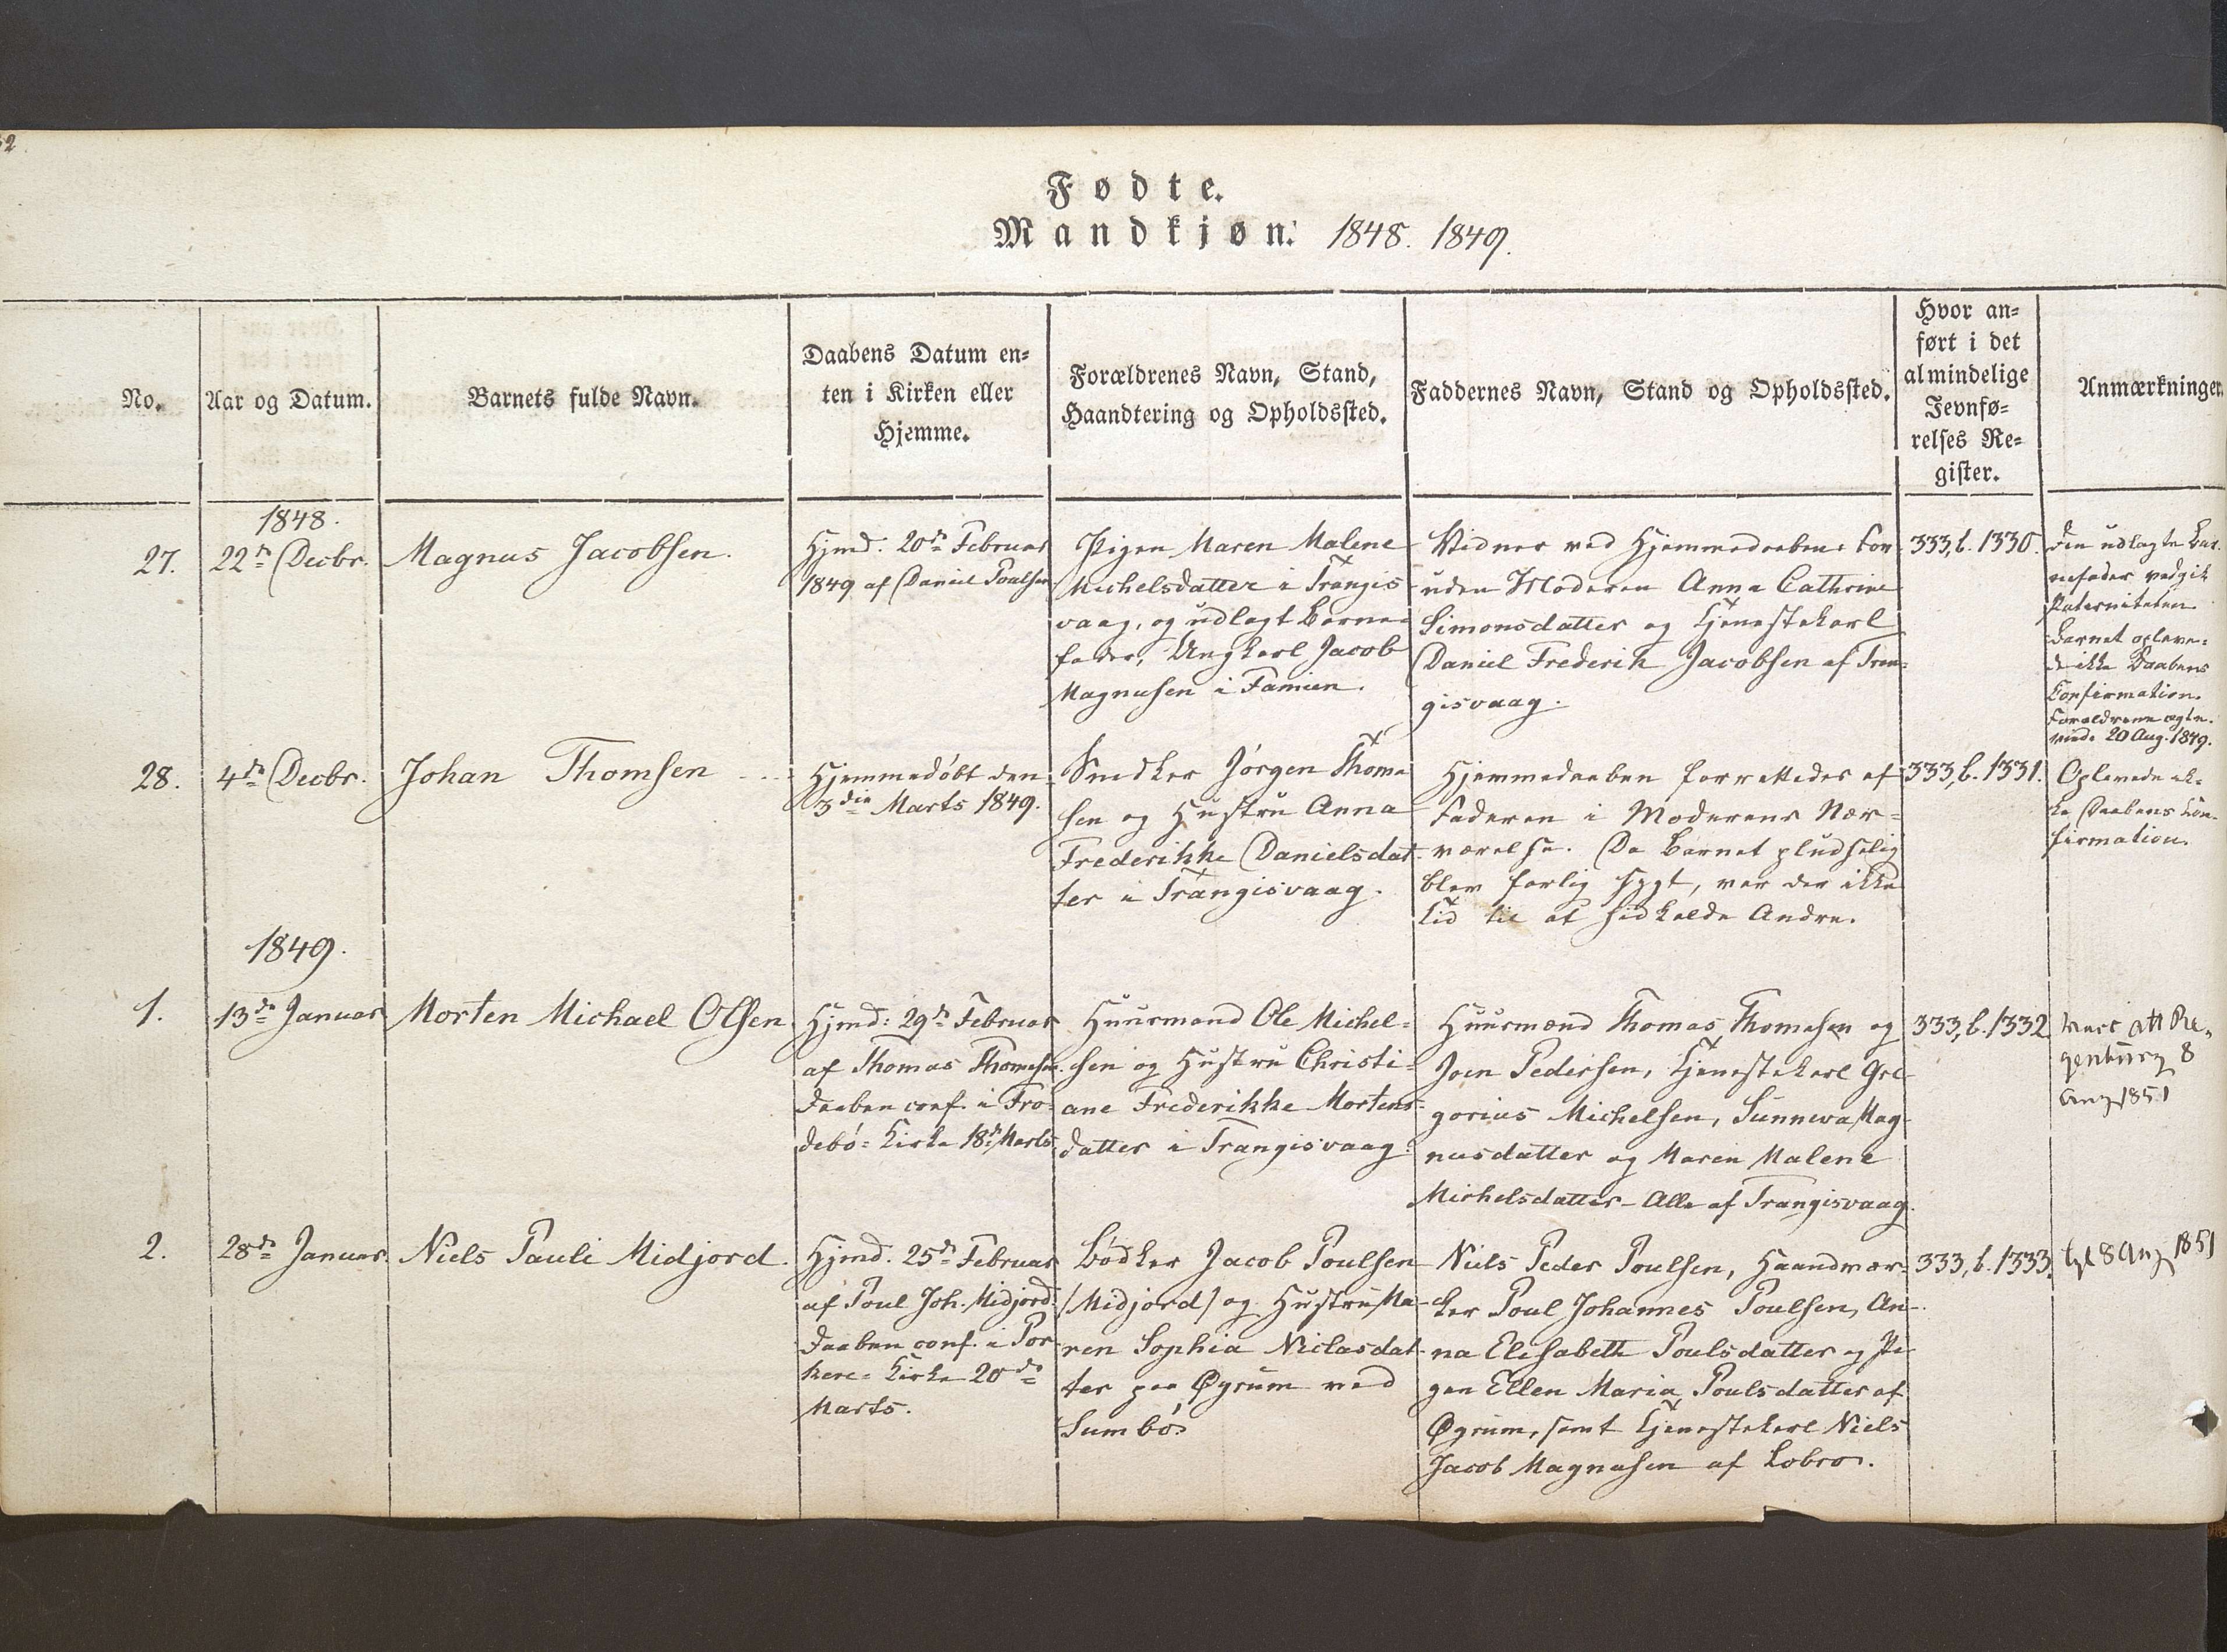 Fødte.
Mandkjøn: 1848. 1849.
No.
Aar og Datum.
Barnets fulde Navn.
Daabens Datum en-
ten i Kirken eller
Hjemme.
Forældrenes Navn, Stand,
Haandtering og Opholdssted.
Faddernes Navn, Stand og Opholdssted.
Hvor an-
ført i det
almindelige
Jevnfø-
relses Re-
gister.
Anmærkninger.
1848.
27.
22de Decbr.
Magnus Jacobsen.
Hjmd. 20de Februar
1849 af Daniel Poulsen
Pigen Maren Malene
Michelsdatter i Trangis
vaag, og udlagt Barne-
fader, Ungkarl Jacob
Magnusen i Famien.
Vidner ved Hjemmedaaben: For
uden Moderen Anna Cathrine
Simonsdatter og Tjenestekarl
Daniel Frederik Jacobsen af Tran-
gisvaag.
333, b. 1330.
Den udlagte Bar-
nefader vedgik
Paterniteten.
Barnet opleve-
de ikke Daabens
Confirmation.
Forældrene ægte-
viede 20 Aug. 1849.
28.
4de Decbr.
Johan Thomsen
Hjemmedøbt den
3die Marts 1849.
Snedker Jørgen Thom-
sen og Hustru Anna
Frederikke Danielsdat-
ter i Trangisvaag.
Hjemmedaaben forrettedes af
Faderen i Moderens Nær-
værelse. Da Barnet pludselig
blev farlig sygt, var der ikke
Tid til at hidkalde Andre.
333, b. 1331.
Oplevede ik-
ke Daabens Con-
firmation.
1849.
1.
13de Januar
Morten Michael Olsen
Hjmd: 29de Februar
af Thomas Thomsen.
Daaben conf. i Fro-
debø- Kirke 18de Marts
Huusmand Ole Michel-
sen og Hustru Christi-
ane Frederikke Mortens-
datter i Trangisvaag.
Huusmænd Thomas Thomesen og
Joen Pedersen, Tjenestekarl Gre-
gorius Michelsen, Sunneva Mag-
nusdatter og Maren Malene
Michelsdatter - Alle af Trangisvaag.
333, b. 1332
8
1851
2.
28de Januar.
Niels Pauli Midjord.
Hjmd. 25de Februar
af Poul Joh. Midjord.
Daaben conf. i Por-
kere- Kirke 20de
Marts.
Bødker Jacob Poulsen
/Midjord/ og Hustru Ma-
ren Sophia Niclasdat-
ter paa Øgrum ved
Sumbø.
Niels Peder Poulsen, Haandvær-
ker Poul Johannes Poulsen, An-
na Elisabeth Poulsdatter og Pi-
gen Ellen Maria Poulsdatter af
Øgrum, samt Tjenestekarl Niels
Jacob Magnusen af Lobro.
333, b. 1333.
8 Aug 1851